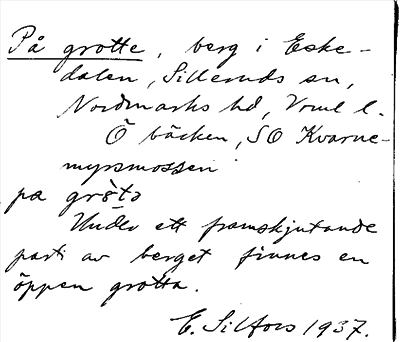 På grotte, berg i Eske-
dalen, Silleruds sn,
Nordmarks hd, Vrml l.
Ö bäcken, SO Kvarne-
myrsmossen
pa grøtə
Under ett framskjutande
parti av berget finnes en
öppen grotta.
E. Silfors 1937.